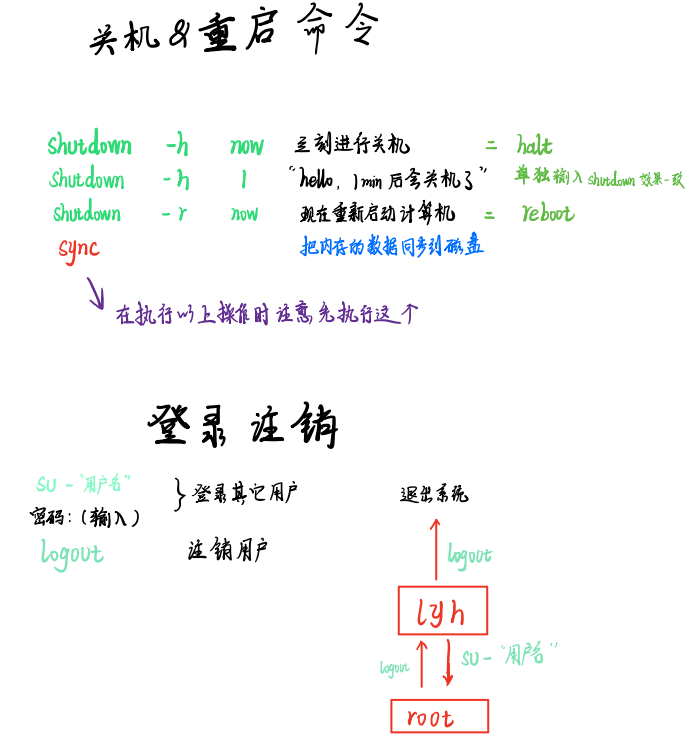 关机&重启命令
shutdown -h now 立刻进行关机 = halt
shutdown -h 1 "hello, 1min后会关机了" 单独输入shutdown效果一致
shutdown -r now 现在重新启动计算机 = reboot
sync 把内存的数据同步到磁盘
在执行以上操作时注意先执行这个
登录注销
su - "用户名" } 登录其它用户
密码:(输入)
logout 注销用户
退出系统
logout
lyh
logout su - "用户名"
root